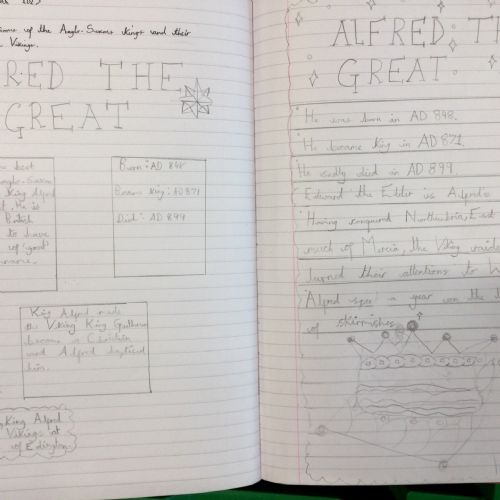 some of the Anglo-Saxon kings and their
Vikings.
RED THE
GREAT
best
Anglo-Saxon
King Alfred
He is
British
to have
of 'good'
name.
Born: AD 848
Became King: AD 871
Died: AD 899
King Alfred made
the Viking King Guthrum
become a Christian
and Alfred baptised
him.
King Alfred
Vikings at
of Edington
ALFRED TH
GREAT
He was born in AD 848.
He became King in AD 871.
He sadly died in AD 899.
Edward the Elder is Alfred's
Having conquered Northumbria, East
much of Mercia, the Viking raide
turned their attentions to W
Alfred spent a year on the
of skirmishes.